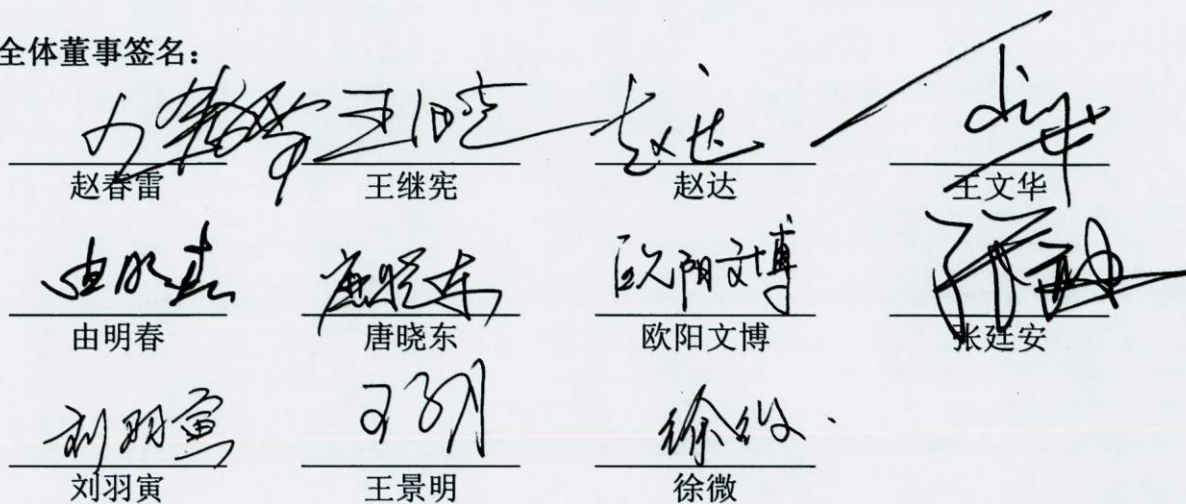 全体董事签名：
赵春雷 王继宪 赵达 王文华
由明春 唐晓东 欧阳文博 张廷安
刘羽寅 王景明 徐微